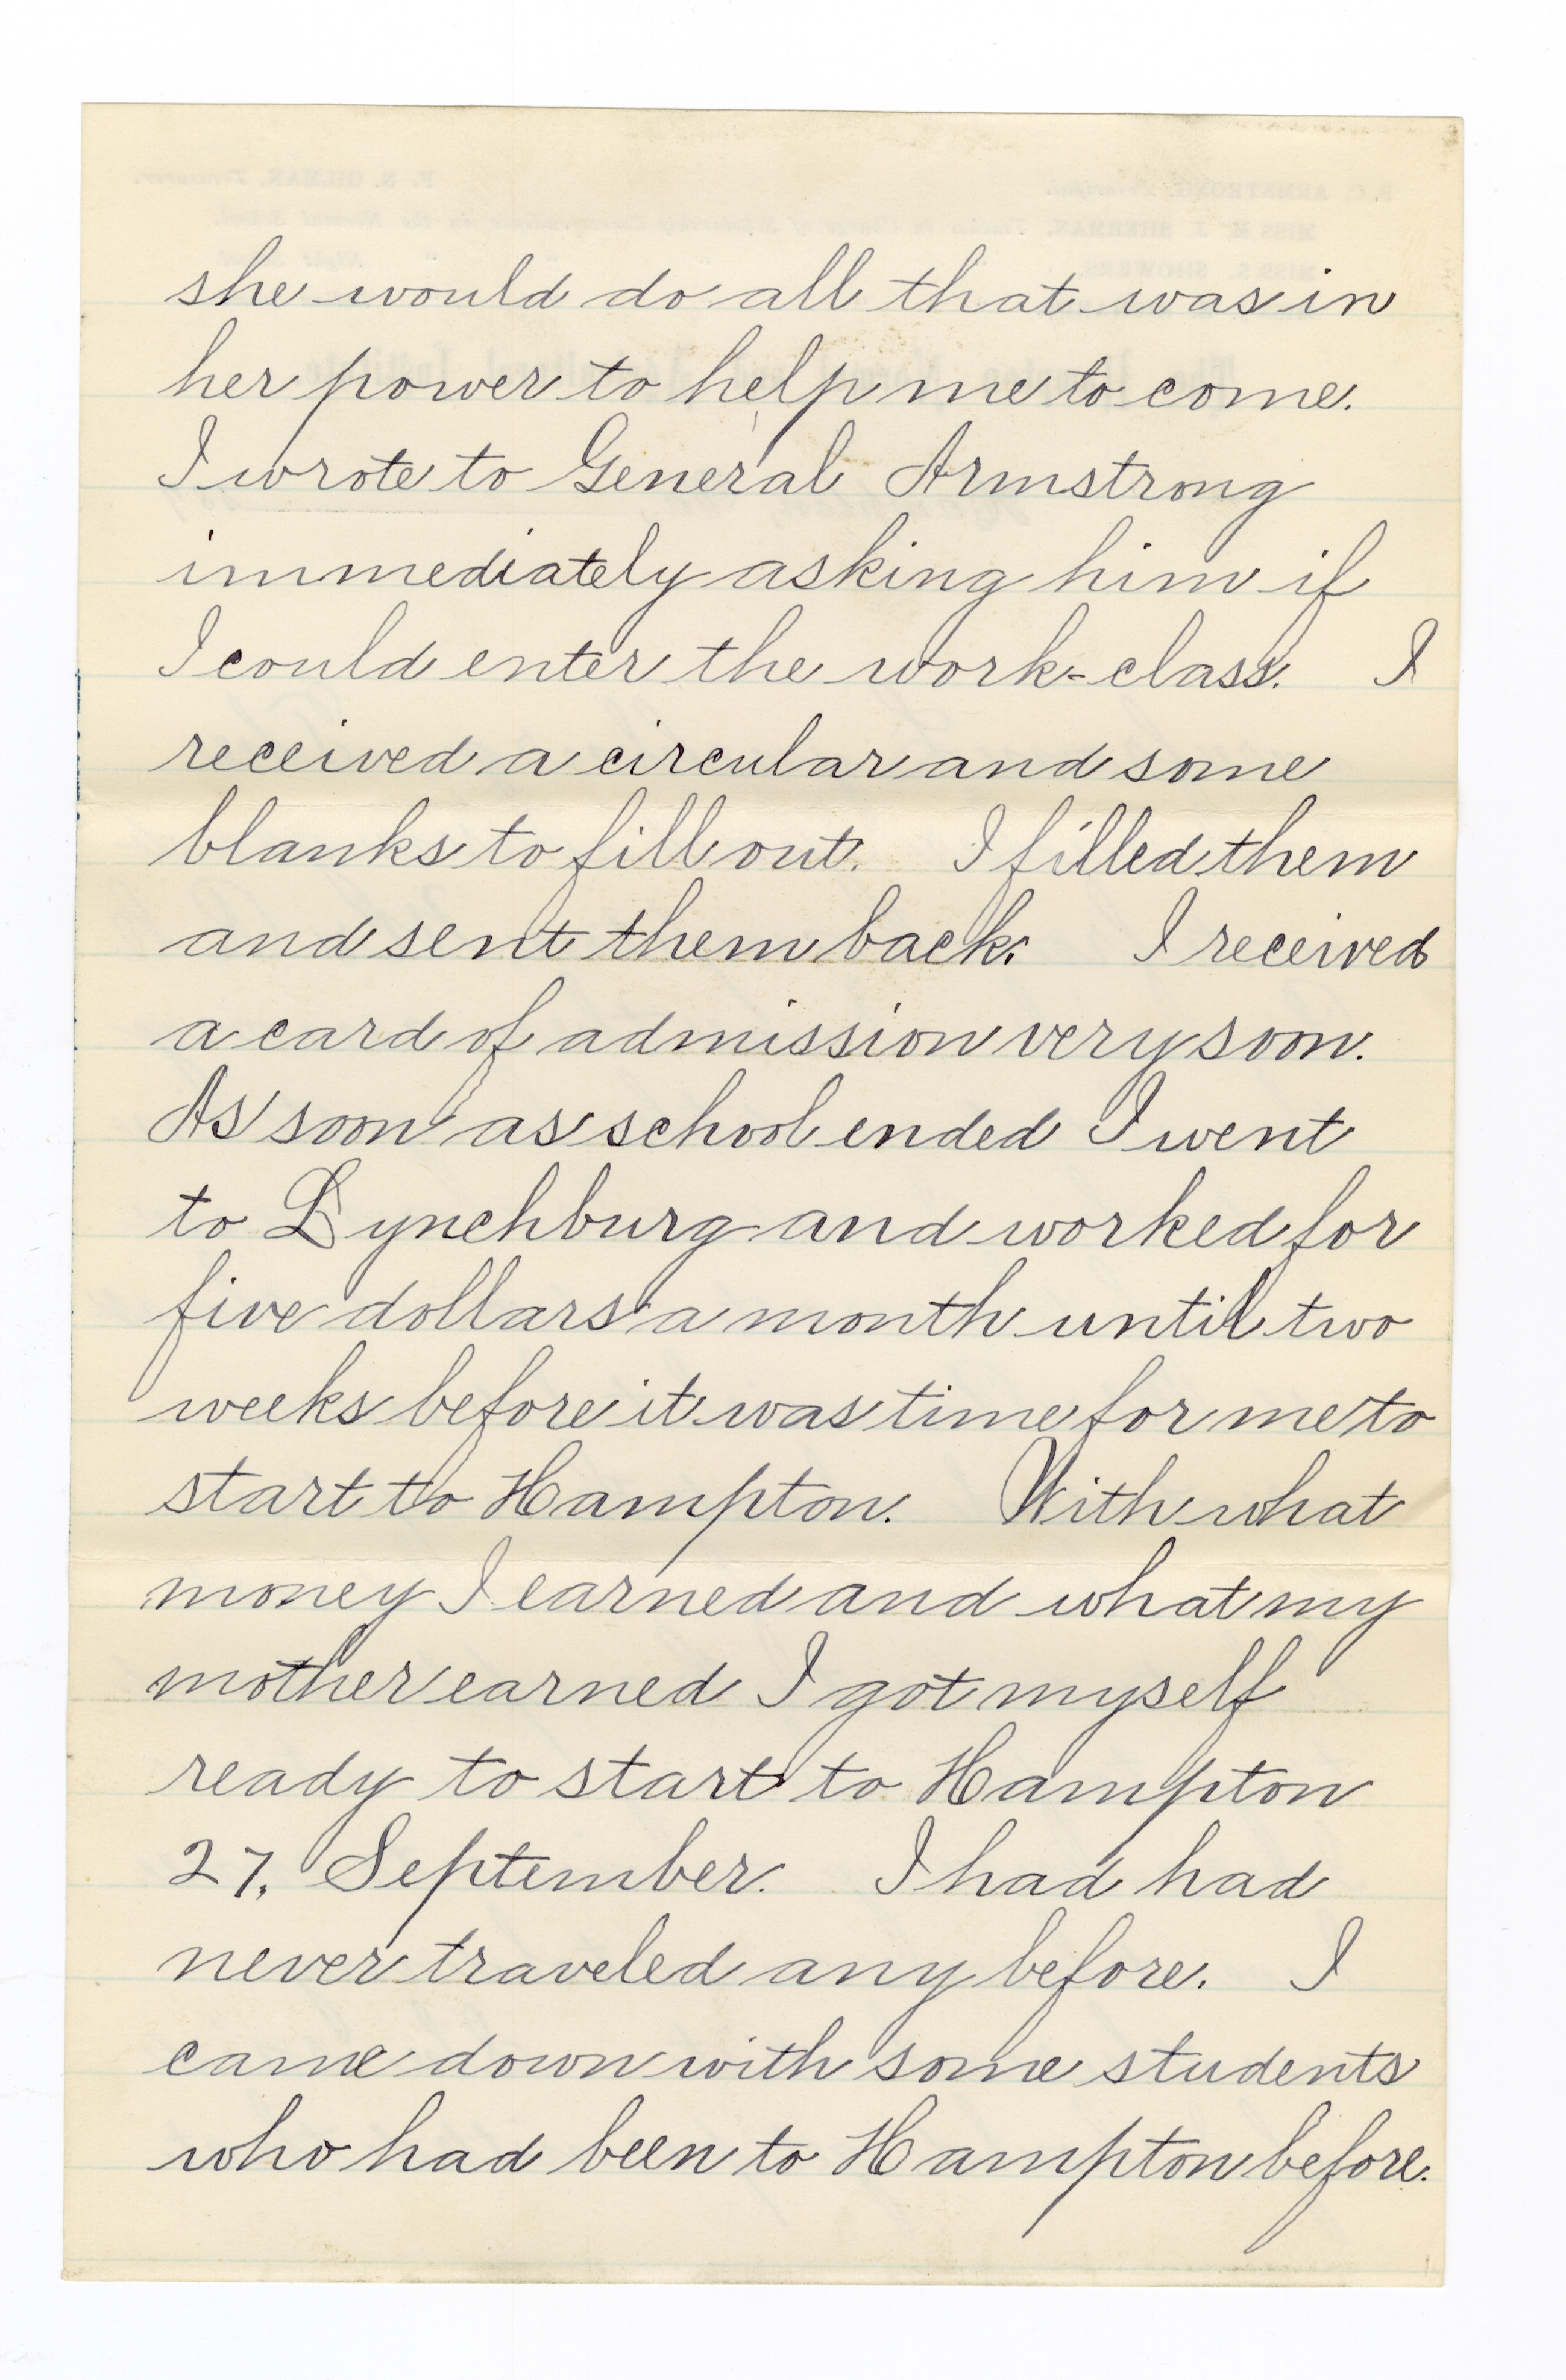 she would do all that was in
her power to help me to come.
I wrote to General Armstrong
immediately asking him if
I could enter the work-class. I
received a circular and some
blanks to fill out. I filled them
and sent them back. I received
a card of admission very soon.
As soon as school ended I went
to Lynchburg and worked for
five dollars a month until two
weeks before it was time for me to
start to Hampton. With what
money I earned and what my
mother earned I got myself
ready to start to Hampton
27, September. I had had
never traveled any before. I
came down with some students
who had been to Hampton before.